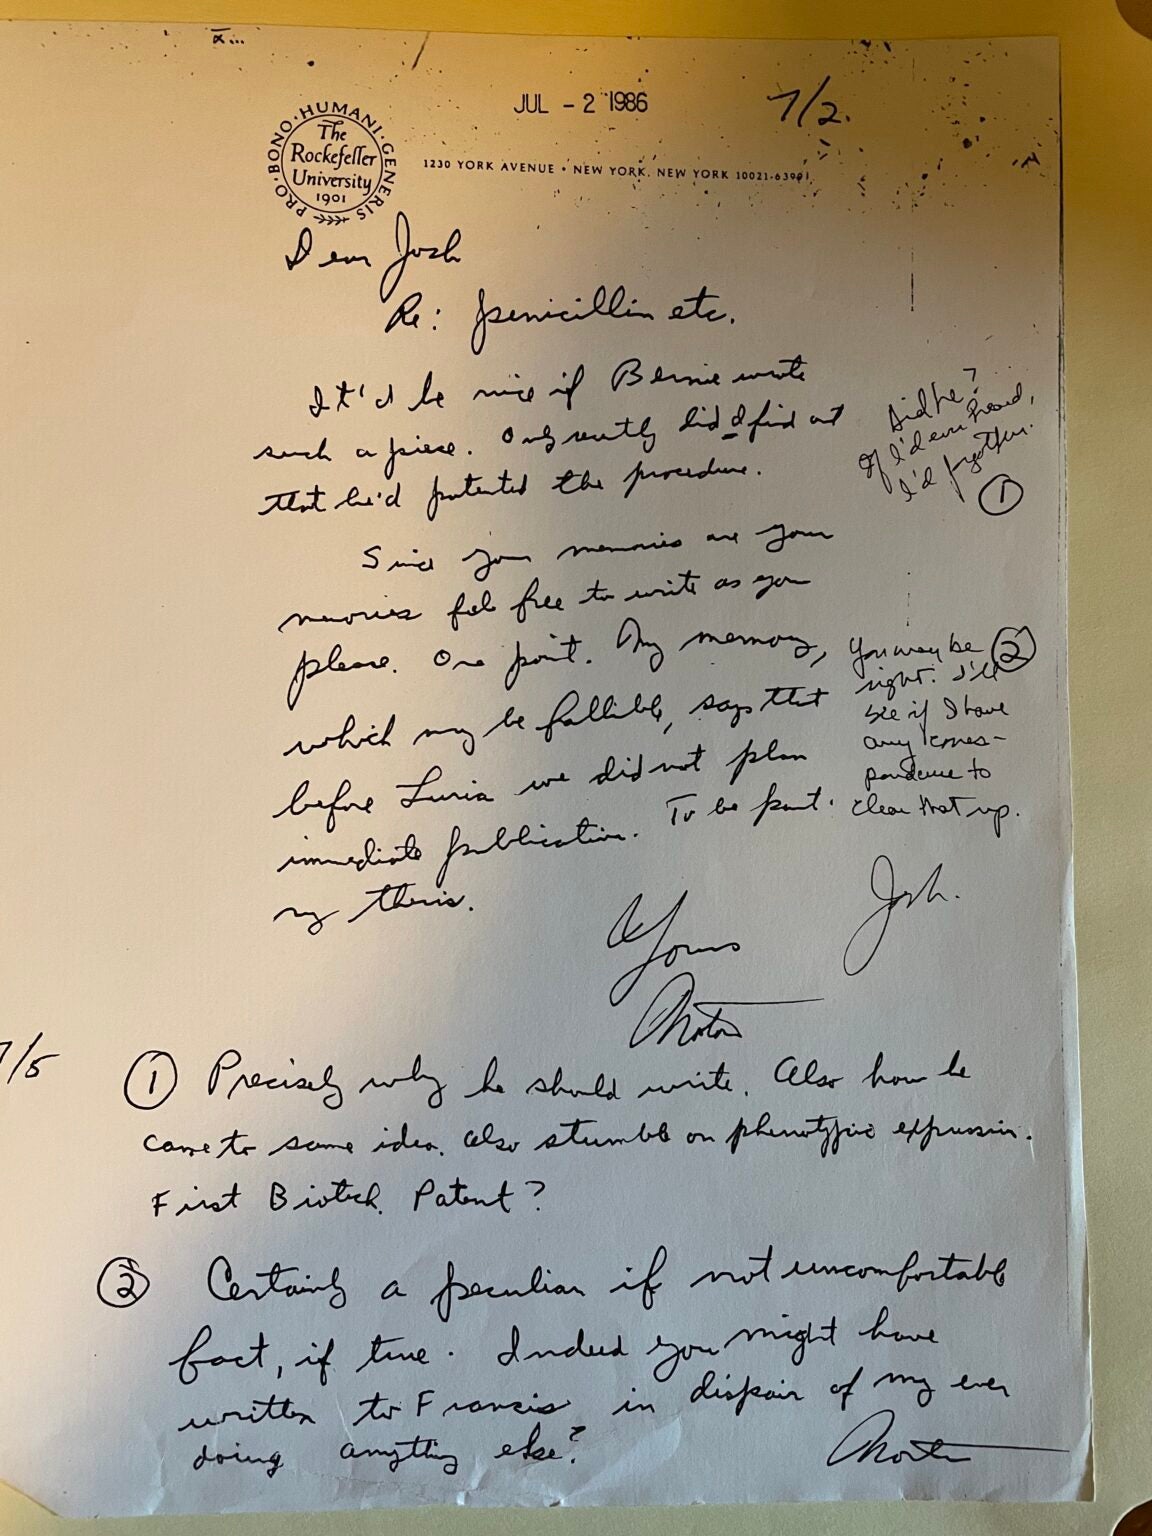 JUL - 2 1986
7/2.
PRO·BONO·HUMANI·GENERIS
The
Rockefeller
University
1901
1230 YORK AVENUE · NEW YORK, NEW YORK 10021-6399
Dear Josh
Re: penicillin etc.
It'd be nice if Bernie wrote
such a piece. Only recently did I find out
that he'd patented the procedure.
Did he?
If I'd ever heard,
I'd forgotten.
①
Since your memories are your
memories feel free to write as you
please. One point. My memory,
which may be fallible, says that
before Luria we did not plan
immediate publication. To be part.
my thesis.
You may be ②
right. I'll
see if I have
any corres-
pondence to
clear that up.
Josh.
Yours
Norton
7/5
① Precisely why he should write. Also how he
came to same idea. Also stumble on phenotypic expression.
First Biotech. Patent?
② Certainly a peculiar if not uncomfortable
fact, if true. Indeed you might have
written to Francis in dispair of my ever
doing anything else?
Norton